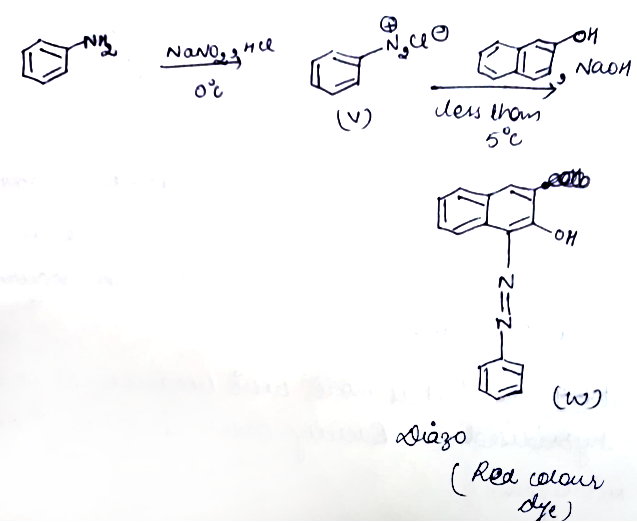 NH2
NaNO2, HCl
0°C
⊕
N2Cl⊖
(V)
OH
, NaOH
less than
5°C
OH
N
N
(W)
Diazo
(Red colour
dye)